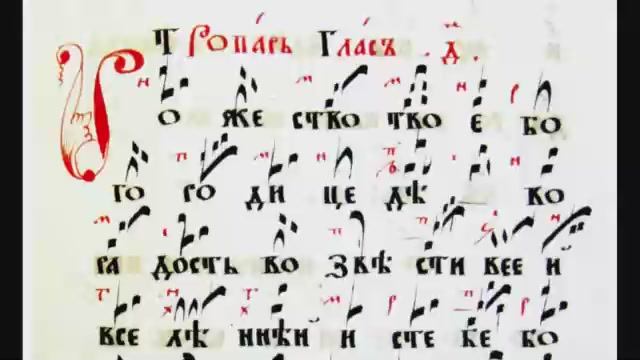 Тропа́рь Гла́съ . д҃ .
Р о же ство тво е бо
го ро ди це дѣ во
ра дость во звѣ сти все и
все лѣ ннѣи и сте бе бо